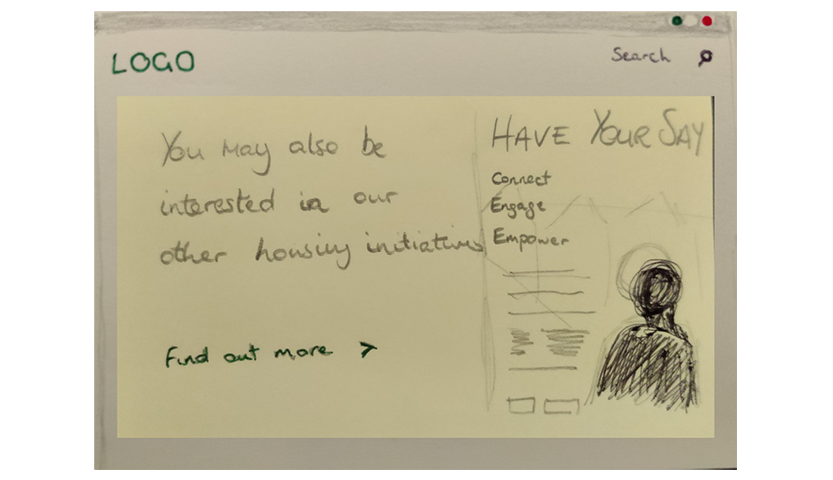 LOGO
Search
You may also be
interested in our
other housing initiatives
Find out more >
HAVE YOUR SAY
Connect
Engage
Empower